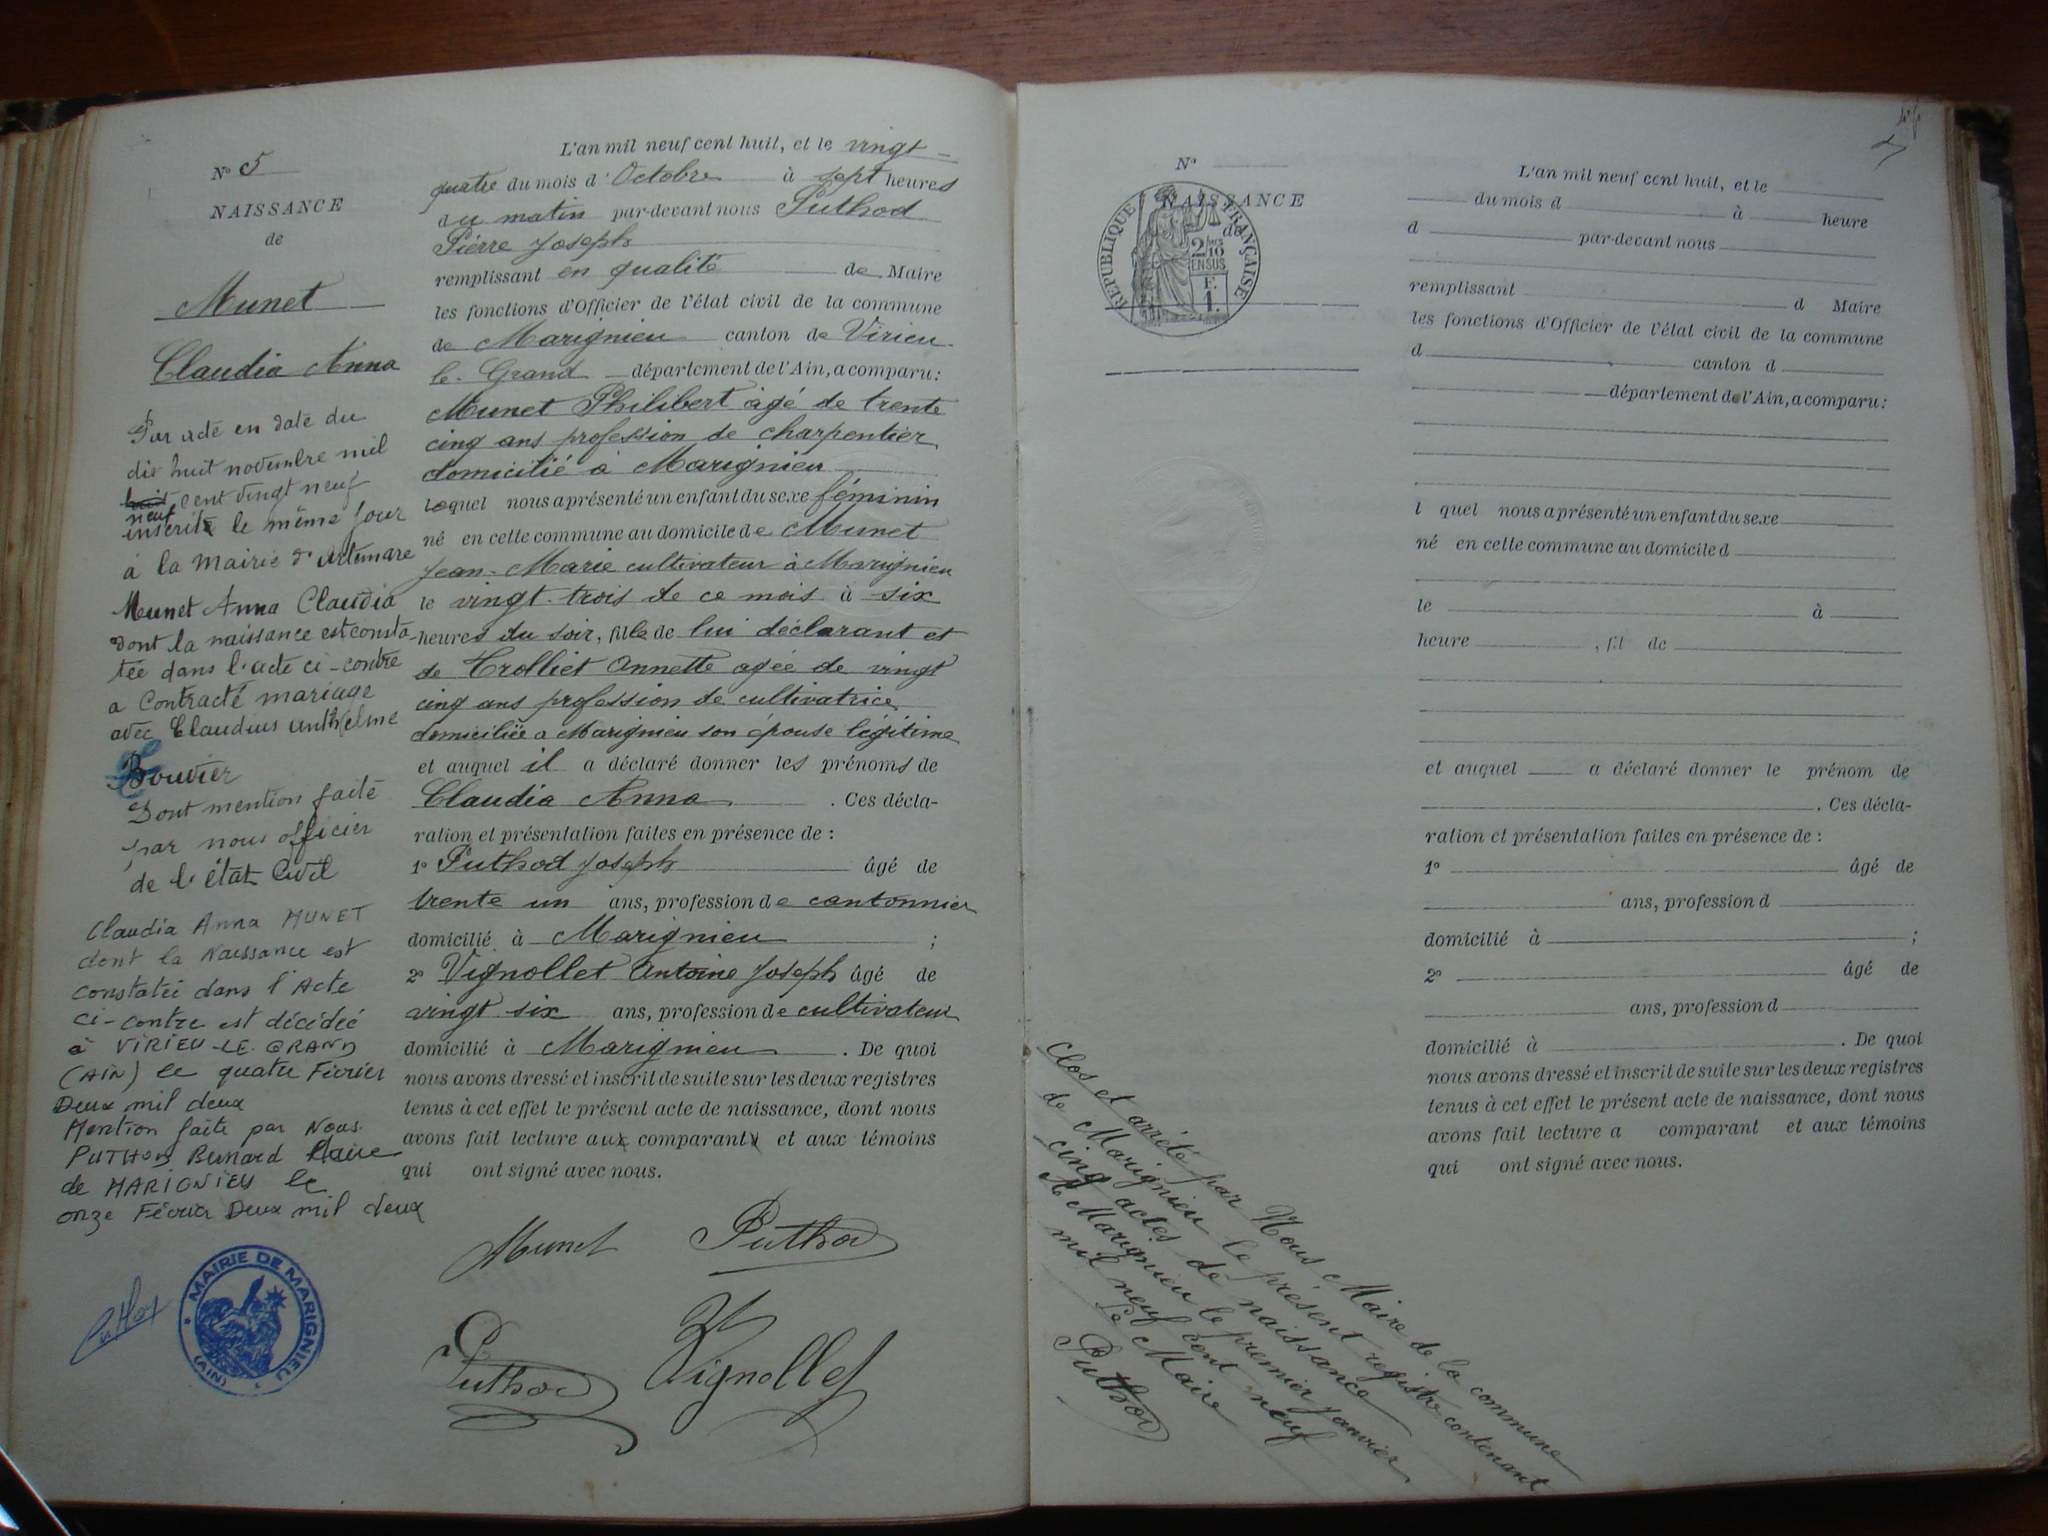 N° 5
NAISSANCE
de
Munet
Claudia Anna
Par acte en date du
dix huit novembre mil
huit cent vingt neuf
neuf
inscrit le même jour
à la Mairie d'Artemare
Munet Anna Claudia
dont la naissance est consta-
tée dans l'acte ci-contre
a contracté mariage
avec Claudius Anthelme
Bouvier
Dont mention faite
par nous officier
de l'état Civil
Claudia Anna MUNET
dont la Naissance est
constatée dans l'Acte
ci-contre est décédée
à VIRIEU-LE-GRAND
(AIN) le quatre Février
Deux mil deux
Mention faite par Nous
PUTHOD Bernard Maire
de MARIGNIEU le
onze Février Deux mil deux
MAIRIE DE MARIGNIEU
(AIN)
L'an mil neuf cent huit, et le vingt-
quatre du mois d'Octobre à sept heures
du matin par-devant nous Puthod
Pierre Joseph
remplissant en qualité de Maire
les fonctions d'Officier de l'état civil de la commune
de Marignieu canton de Virieu-
le-Grand département de l'Ain, a comparu :
Munet Philibert âgé de trente
cinq ans profession de charpentier
domicilié à Marignieu
lequel nous a présenté un enfant du sexe féminin
né en cette commune au domicile de Munet
Jean-Marie cultivateur à Marignieu
le vingt-trois de ce mois à six
heures du soir, fille de lui déclarant et
de Trolliet Annette agée de vingt
cinq ans profession de cultivatrice
domiciliée a Marignieu son épouse légitime
et auquel il a déclaré donner les prénoms de
Claudia Anna . Ces décla-
ration et présentation faites en présence de :
1° Puthod Joseph âgé de
trente un ans, profession de cantonnier
domicilié à Marignieu ;
2° Vignollet Antoine Joseph âgé de
vingt six ans, profession de cultivateur
domicilié à Marignieu . De quoi
nous avons dressé et inscrit de suite sur les deux registres
tenus à cet effet le présent acte de naissance, dont nous
avons fait lecture aux comparant et aux témoins
qui ont signé avec nous.
Munet Puthod
Puthod Vignollet
N°
NAISSANCE
de
RÉPUBLIQUE FRANÇAISE
2/10
EN SUS
F.
1.
L'an mil neuf cent huit, et le
du mois d à heure
d par-devant nous
remplissant d Maire
les fonctions d'Officier de l'état civil de la commune
d canton d
département de l'Ain, a comparu :
l quel nous a présenté un enfant du sexe
né en cette commune au domicile d
le à
heure , fil de
et auquel a déclaré donner le prénom de
. Ces décla-
ration et présentation faites en présence de :
1° âgé de
ans, profession d
domicilié à ;
2° âgé de
ans, profession d
domicilié à . De quoi
nous avons dressé et inscrit de suite sur les deux registres
tenus à cet effet le présent acte de naissance, dont nous
avons fait lecture a comparant et aux témoins
qui ont signé avec nous.
Clos et arrêté par Nous Maire de la commune
de Marignieu le présent registre contenant
cinq actes de naissance
A Marignieu le premier Janvier
mil neuf cent neuf
Le Maire
Puthod